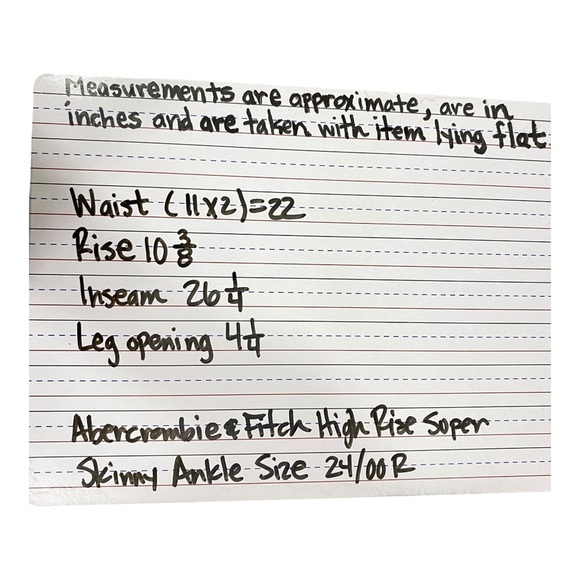 Measurements are approximate, are in
inches and are taken with item lying flat.
Waist (11x2)=22
Rise 10 3/8
Inseam 26 1/4
Leg opening 4 1/4
Abercrombie & Fitch High Rise Super
Skinny Ankle Size 24/00R